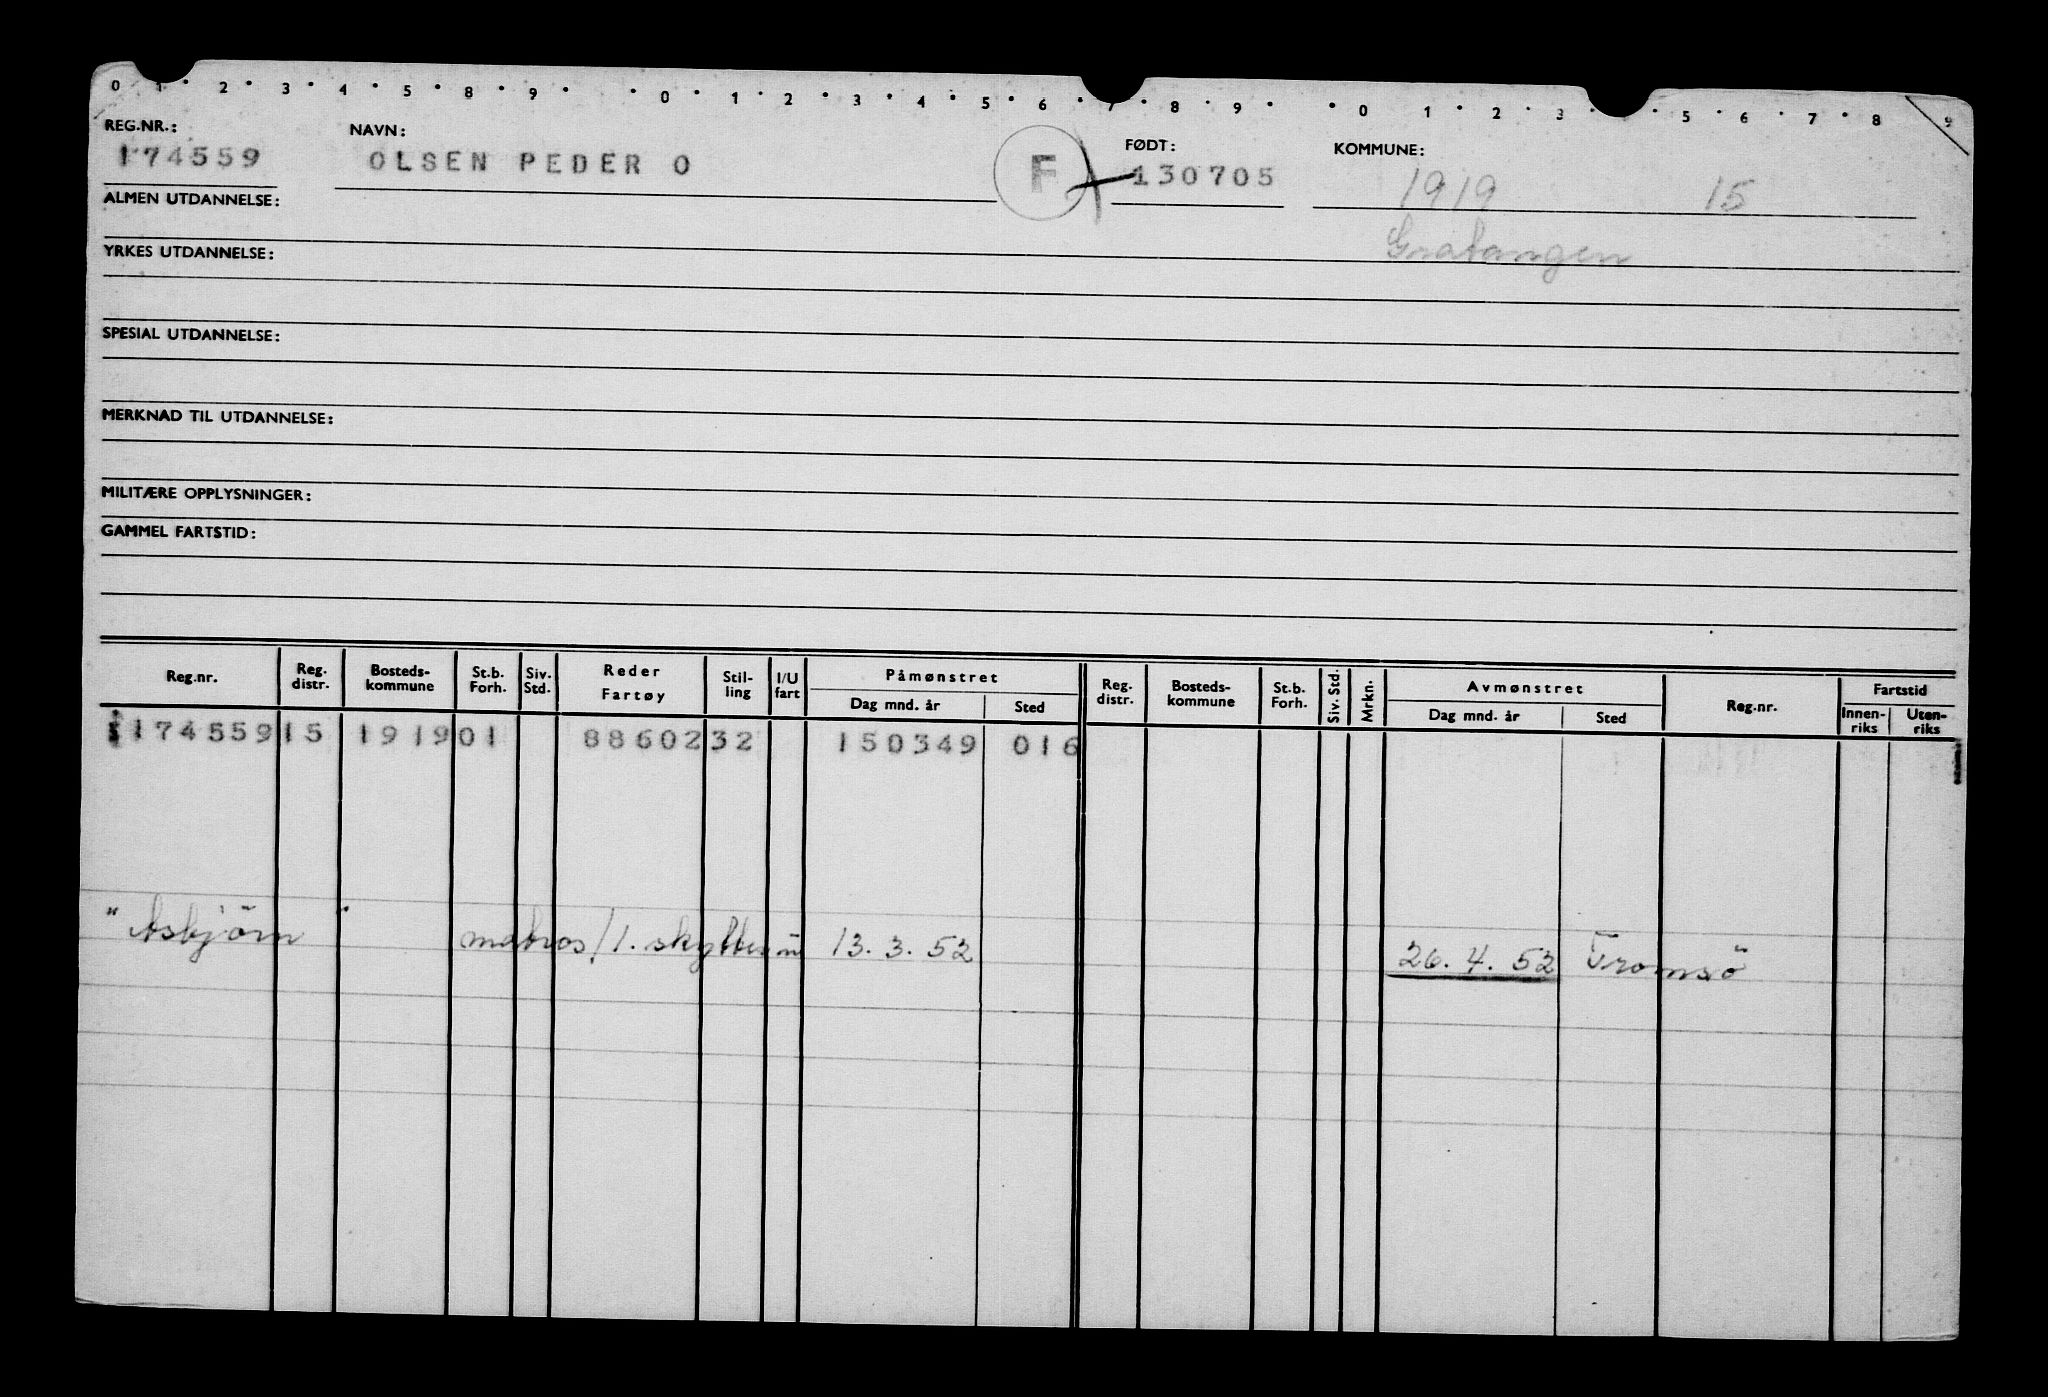 0 1 2 3 4 5 8 9 0 1 2 3 4 5 6 7 8 9 0 1 2 3 5 6 7 8 9
REG.NR.: NAVN: FØDT: KOMMUNE:
174559 OLSEN PEDER O F 130705 1919 15
ALMEN UTDANNELSE:
Gratangen
YRKES UTDANNELSE:
SPESIAL UTDANNELSE:
MERKNAD TIL UTDANNELSE:
MILITÆRE OPPLYSNINGER:
GAMMEL FARTSTID:
Reg.nr. Reg. distr. Bosteds-kommune St.b. Forh. Siv. Std. Reder Fartøy Stil-ling I/U fart Påmønstret Dag mnd. år Sted Reg. distr. Bosteds-kommune St.b. Forh. Siv. Std. Mrkn. Avmønstret Dag mnd. år Sted Reg.nr. Fartstid Innen-riks Uten-riks
174559 15 1919 01 88602 32 150349 016
"Asbjörn" matros/1. 13.3.52 26.4.52 Tromsö